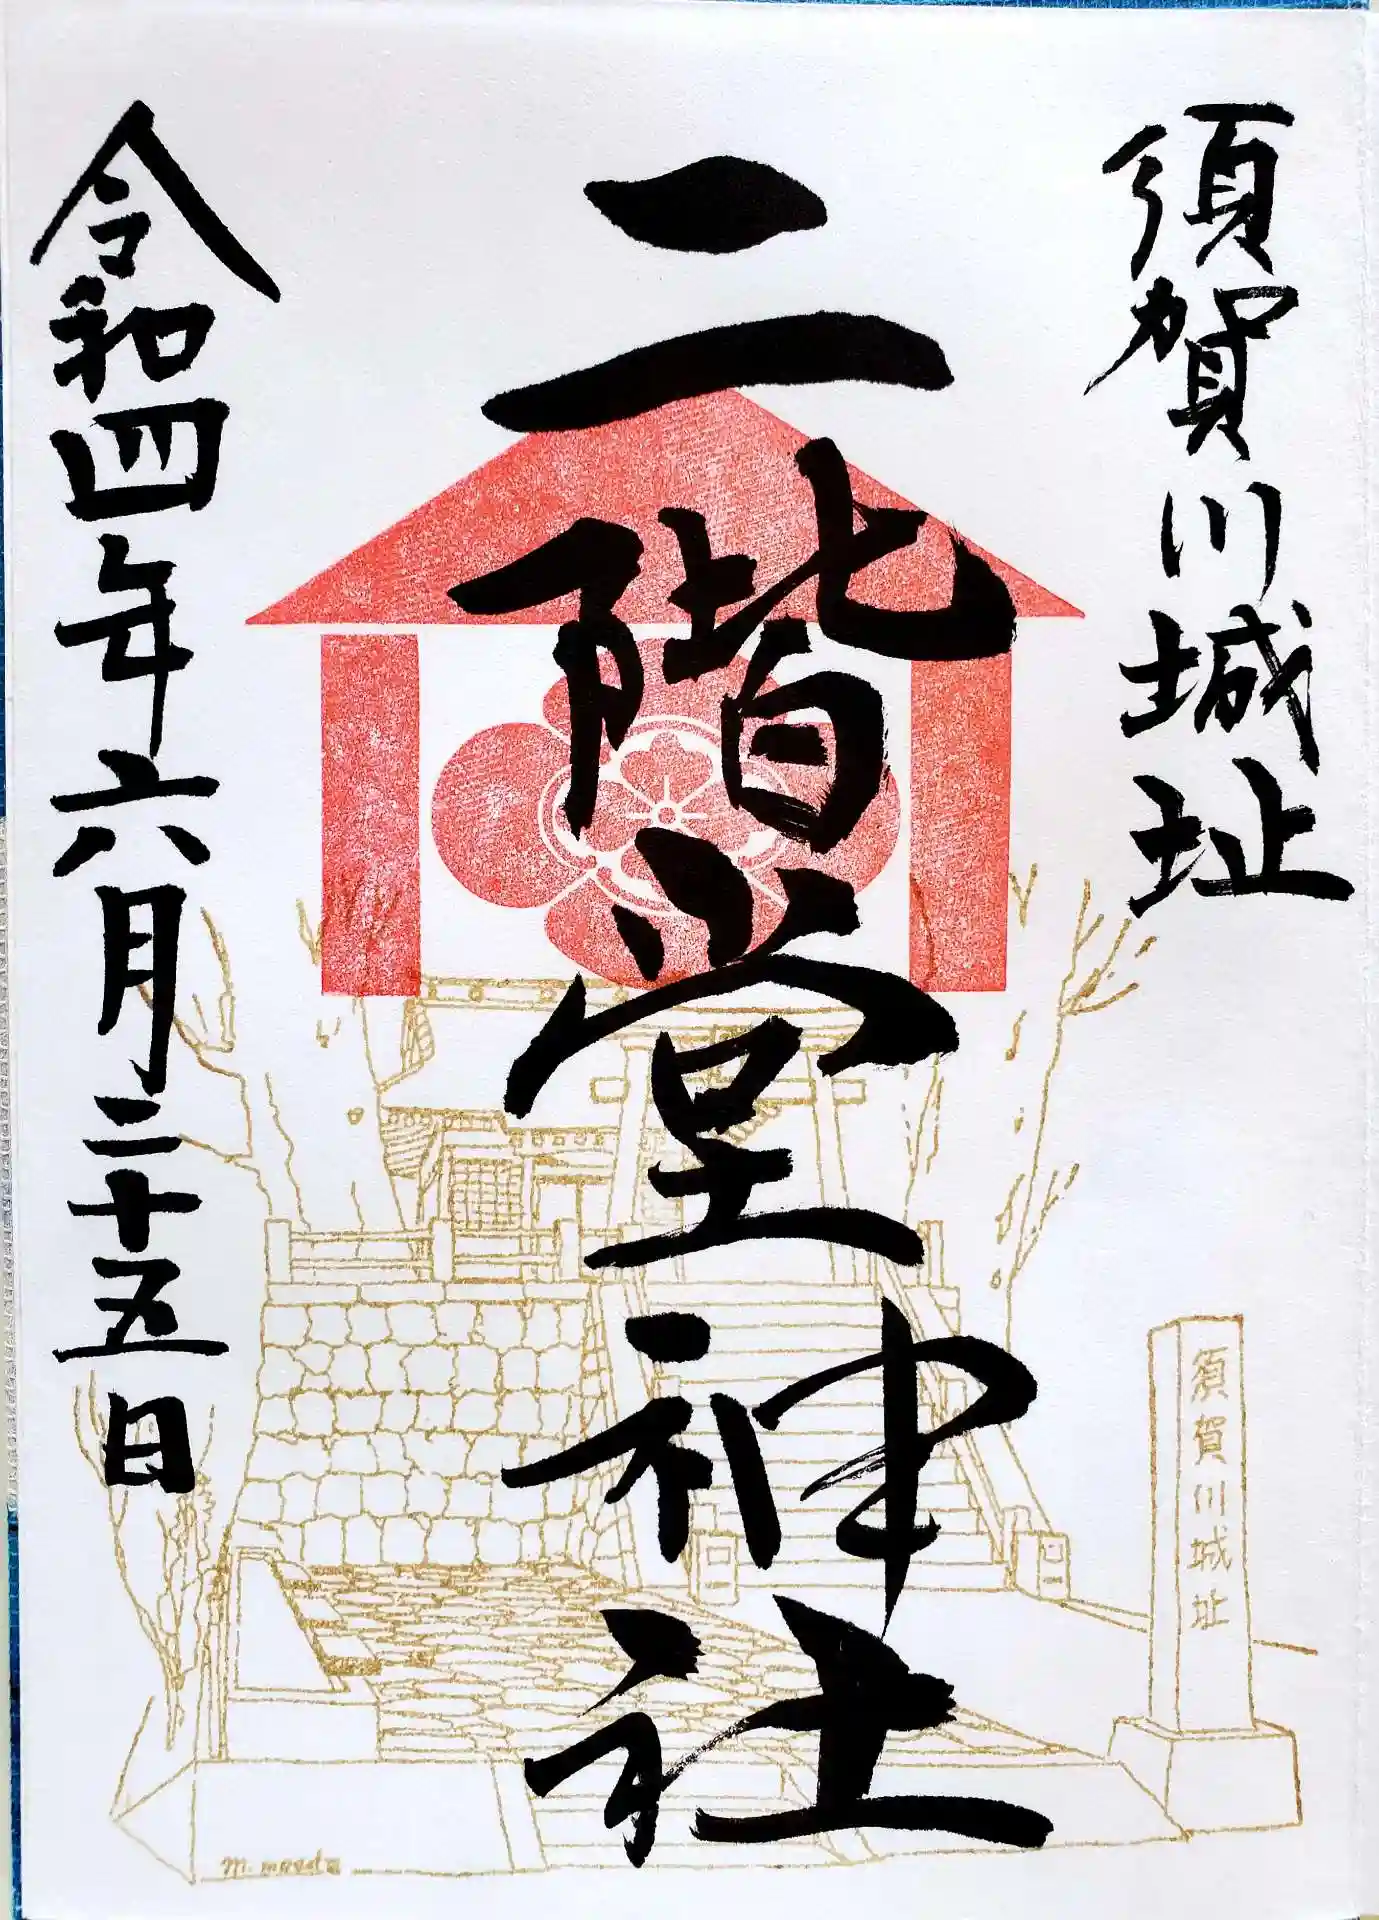 須賀川城址
二階堂神社
令和四年六月二十五日
須賀川城址
M. maeda